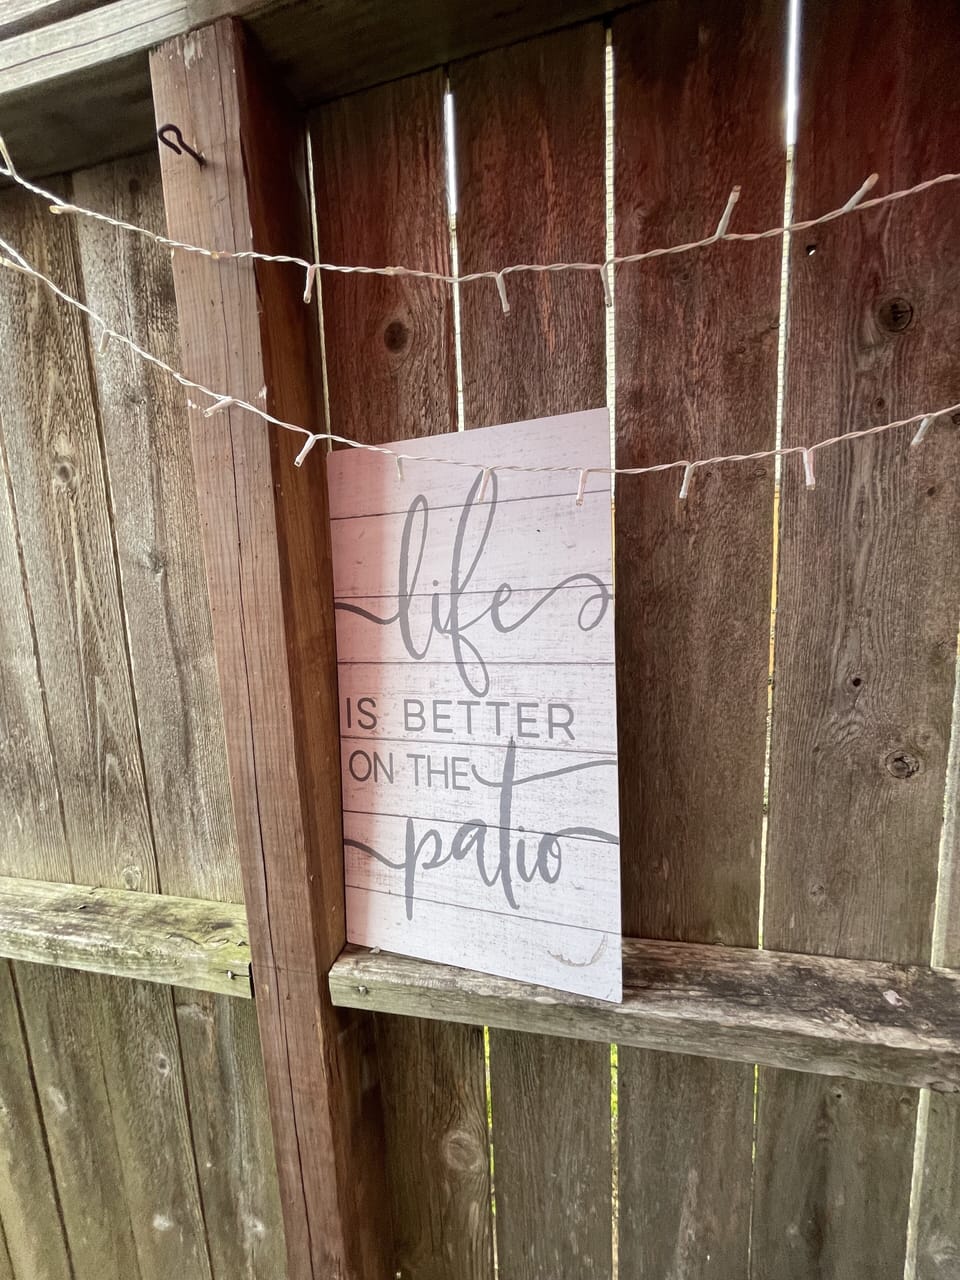 life
IS BETTER
ON THE
patio